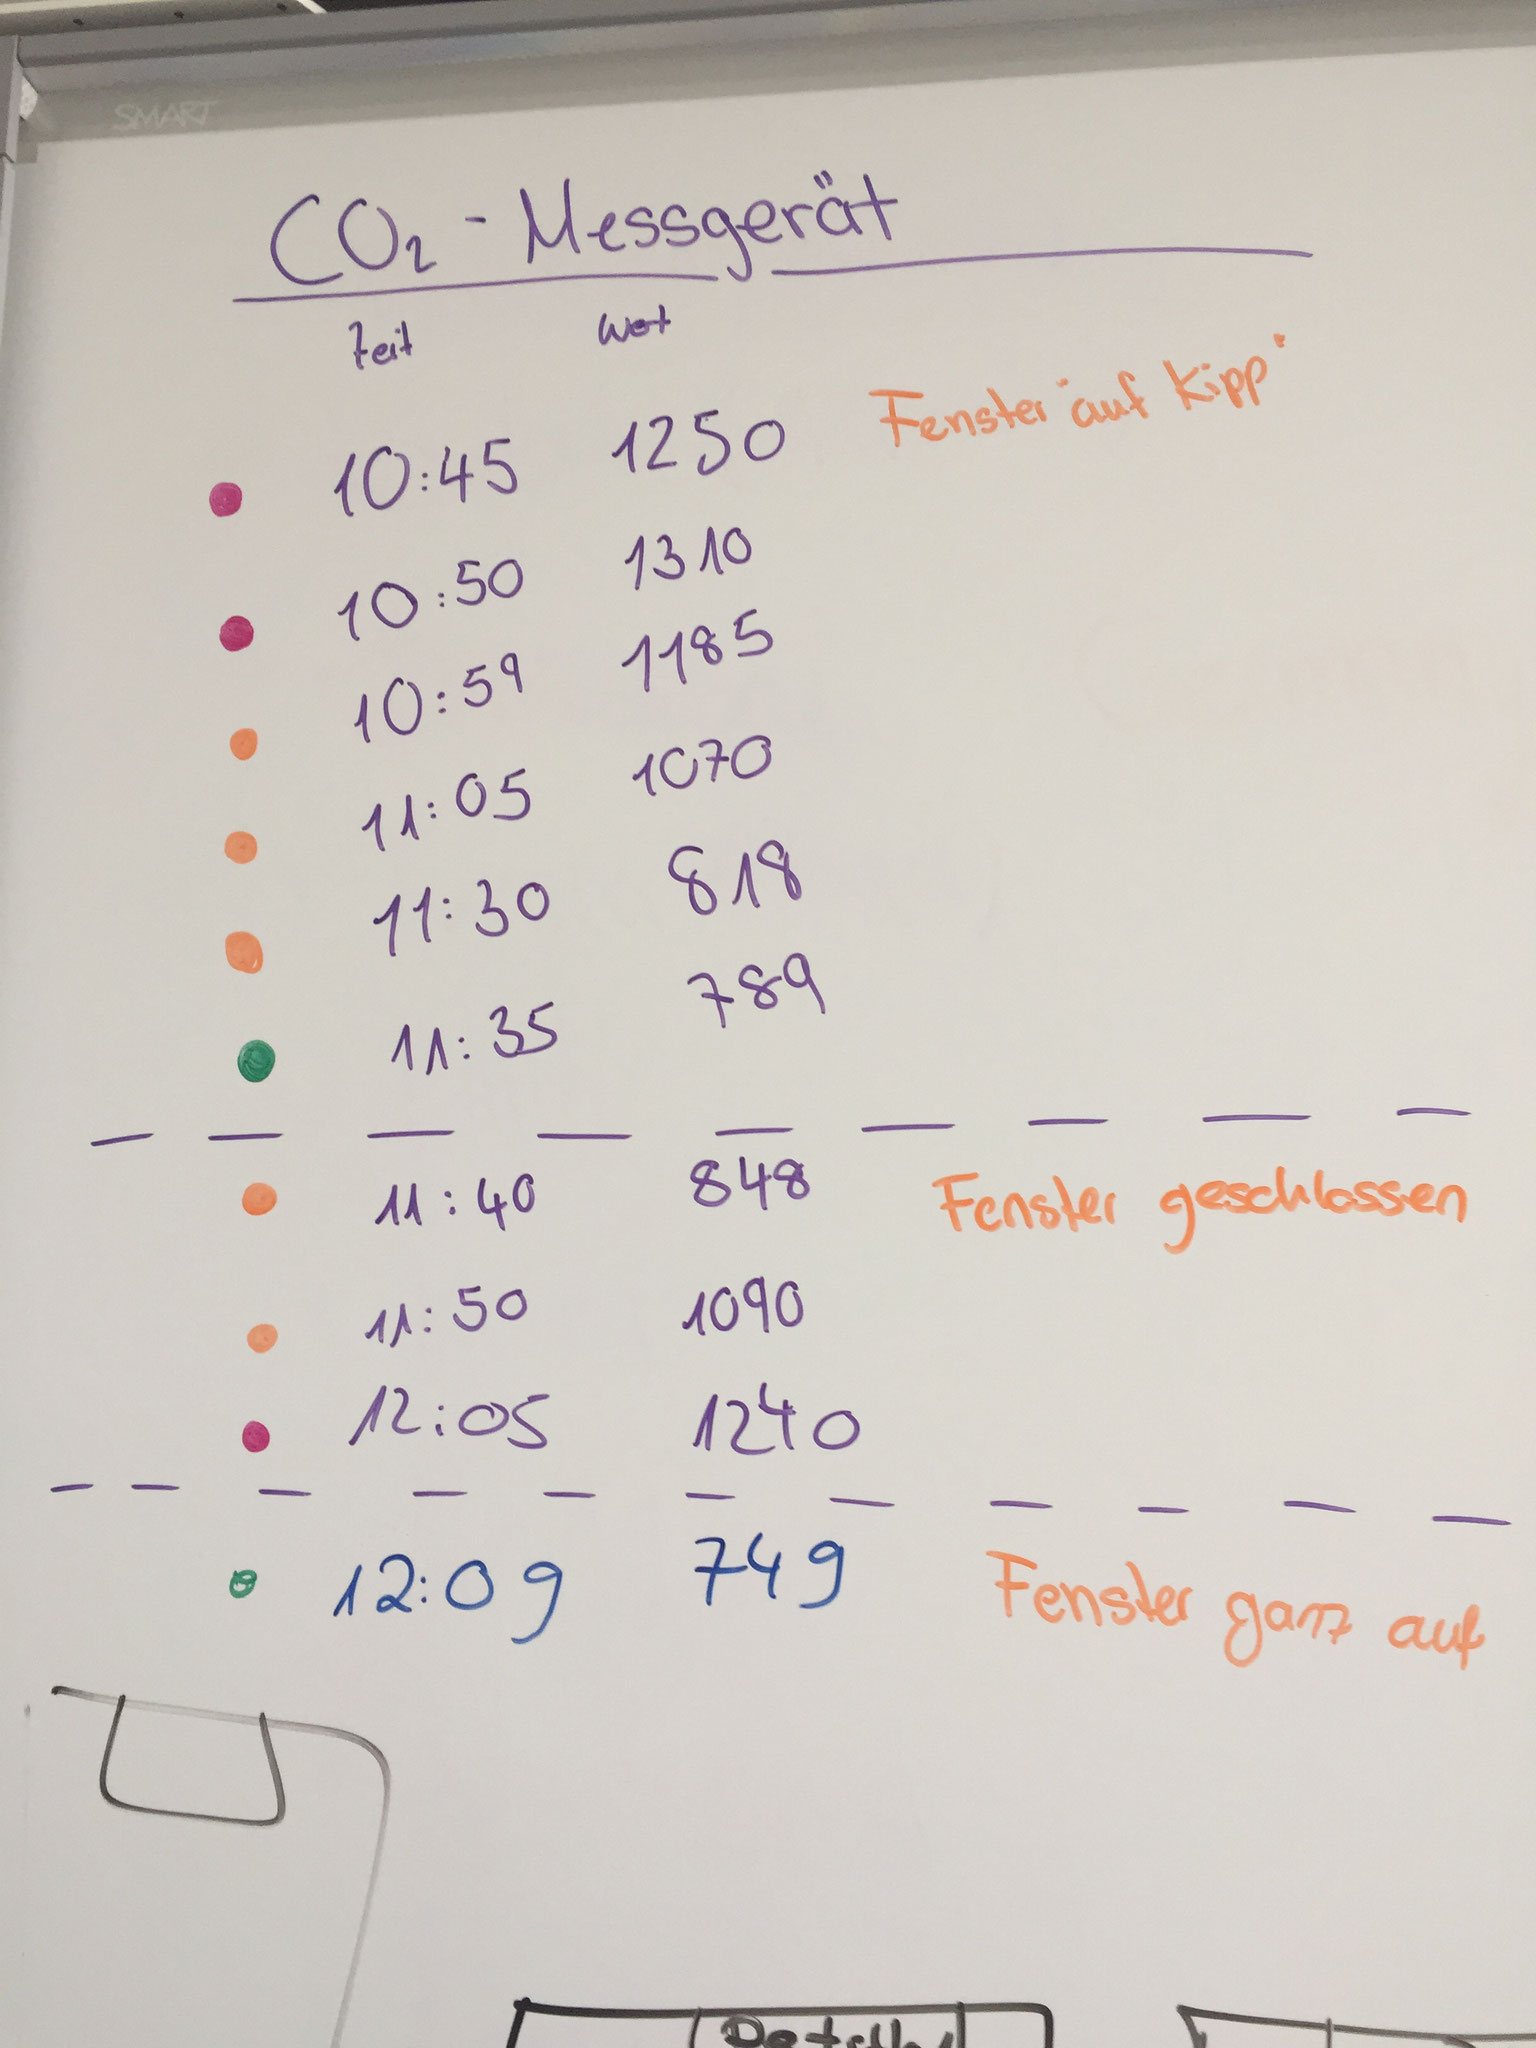 SMART
CO₂-Messgerät
Zeit Wert
10:45 1250 Fenster "auf Kipp"
10:50 1310
10:59 1185
11:05 1070
11:30 818
11:35 789
11:40 848 Fenster geschlossen
11:50 1090
12:05 1240
12:09 749 Fenster ganz auf